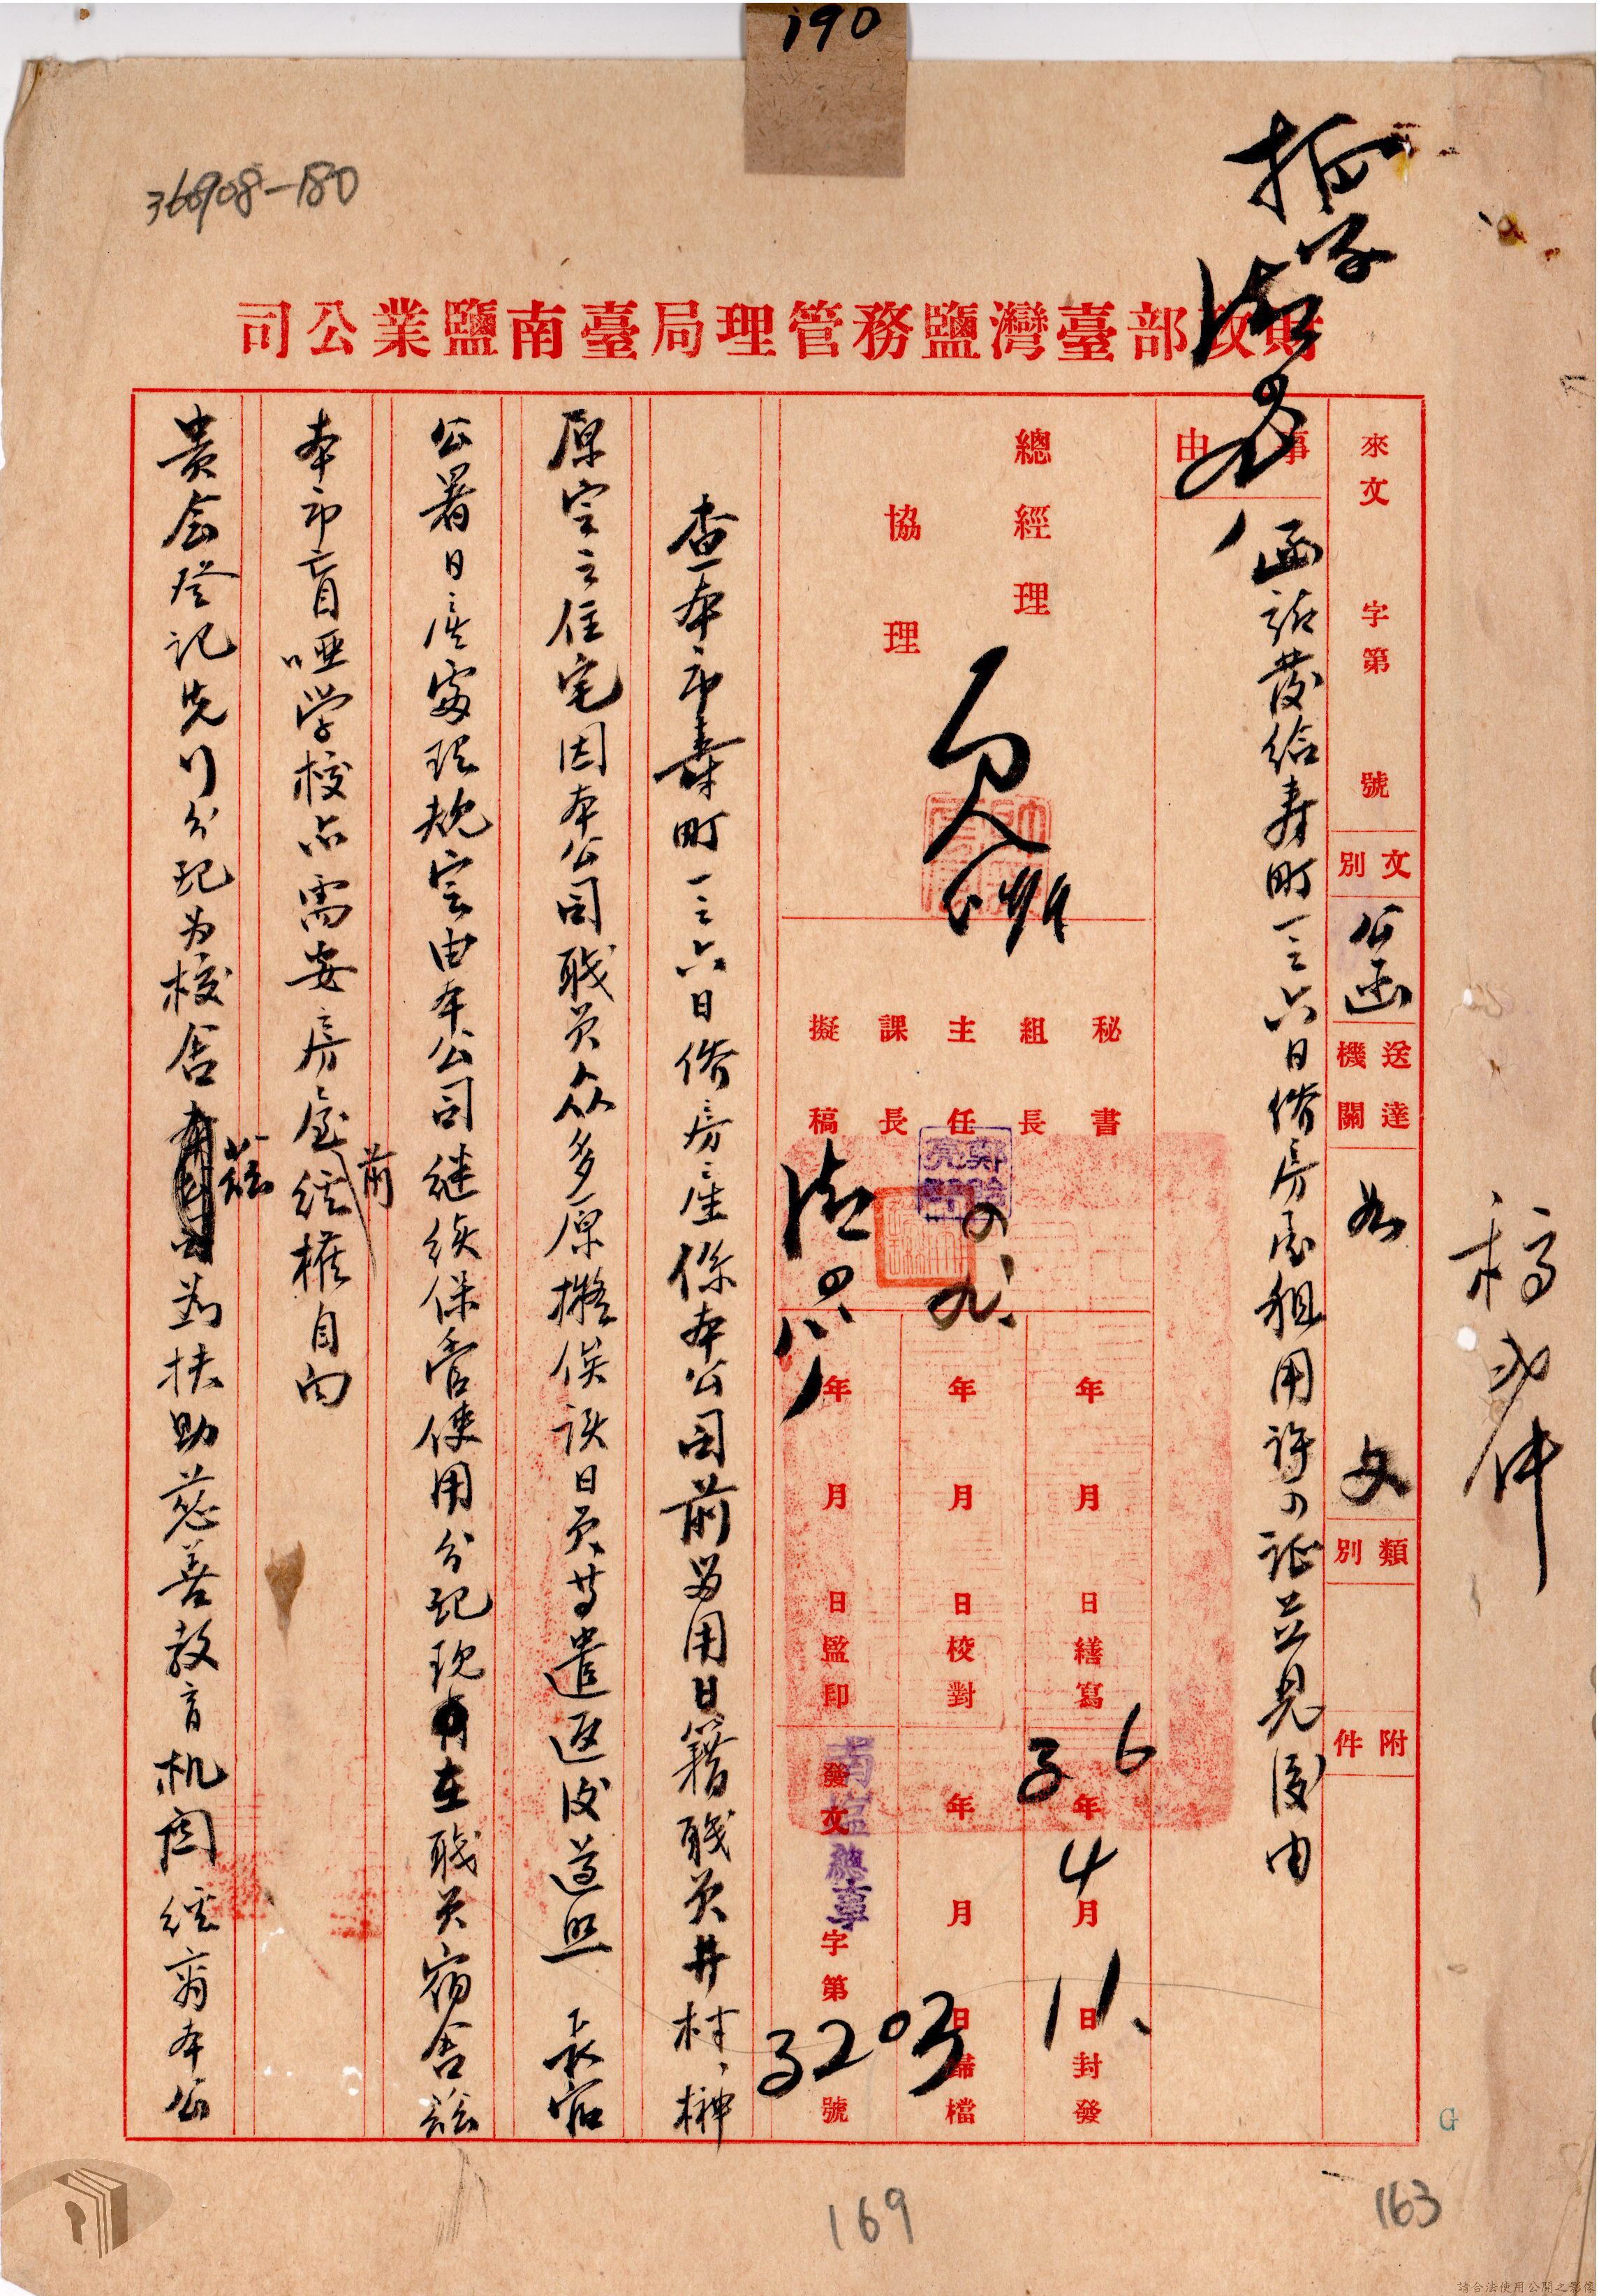 190
366908-180
財政部臺灣鹽務管理局臺南鹽業公司
稿
件
來文 字第 號
文別 公函
送達機關 如文
類別
附件
事由
函請發給寿町一三六日僑房屋租用許可証並見復由
總經理
協理
秘書
組長
主任
課長
擬稿
年 月 日繕寫
年 月 日校對
年 月 日監印
36年4月11日封發
年 月 日歸檔
發文 南鹽總事 字第3203號
查本市寿町一三六日僑房產係本公司前留用日籍職員井村、榊
原宅之住宅因本公司職員众多原擬俟該日員等遣返後遵照 長官
公署日產處理規定由本公司継续保管使用分配現在職員宿舍茲
本市盲啞学校亦需要房屋前經擬自向
貴会登記先行分配为校舍茲為扶助慈善教育机関經商本公
169
163
G
請合法使用公開之影像